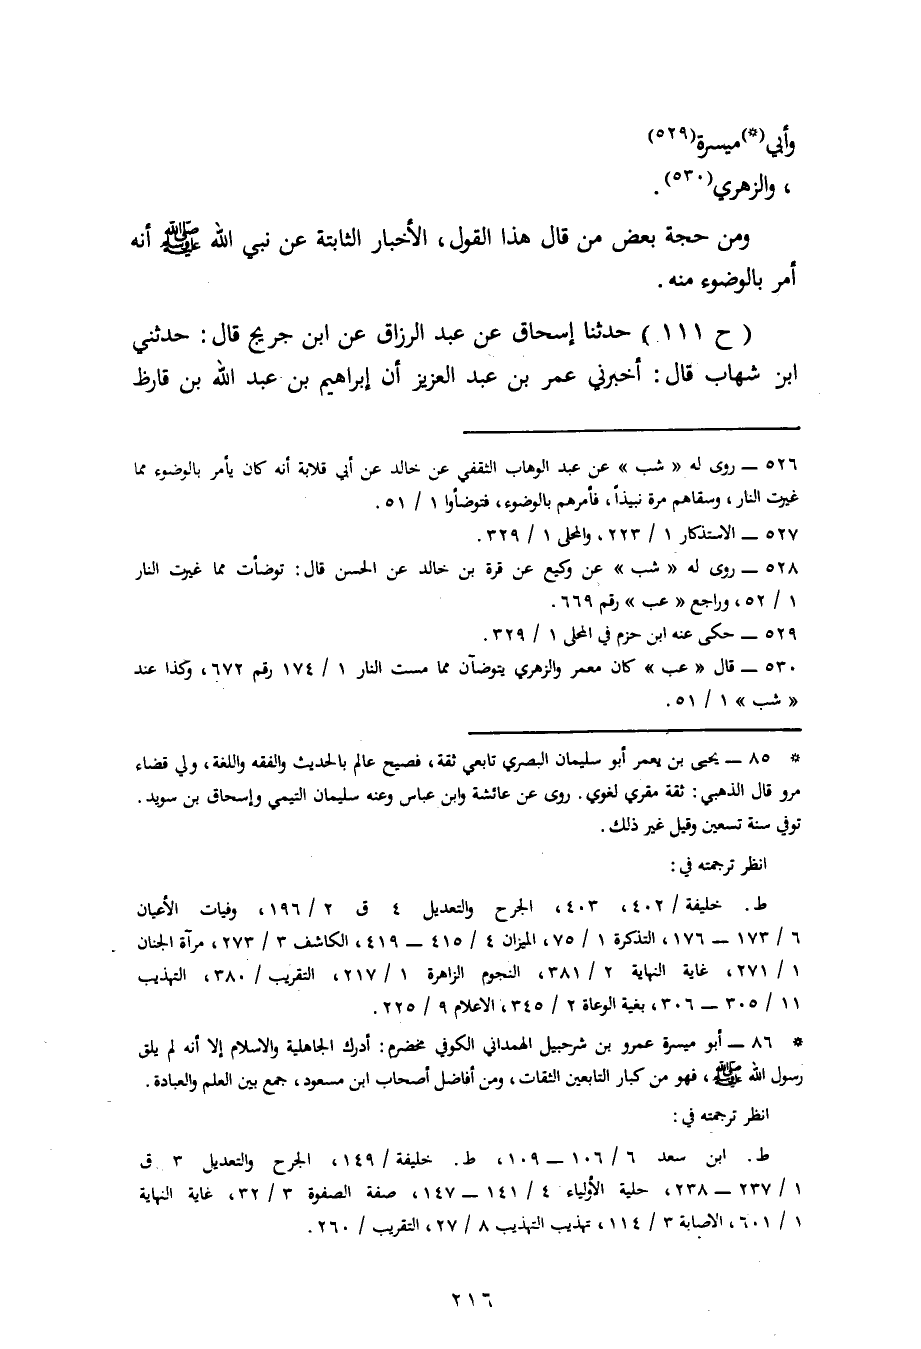 وأبي(*)ميسرة(٥٢٩)
، والزهري(٥٣٠) .
ومن حجة بعض من قال هذا القول، الأخبار الثابتة عن نبي الله ﷺ أنه
أمر بالوضوء منه .
( ح ١١١ ) حدثنا إسحاق عن عبد الرزاق عن ابن جريج قال : حدثني
ابن شهاب قال : أخبرني عمر بن عبد العزيز أن إبراهيم بن عبد الله بن قارظ
٥٢٦ ــ روى له « شب » عن عبد الوهاب الثقفي عن خالد عن أبي قلابة أنه كان يأمر بالوضوء مما
غيرت النار ، وسقاهم مرة نبيذاً ، فأمرهم بالوضوء، فتوضأوا ١ / ٥١ .
٥٢٧ ــ الاستذكار ١ / ٢٢٣ ، والمحلى ١ / ٣٢٩ .
٥٢٨ ــ روى له « شب » عن وكيع عن قرة بن خالد عن الحسن قال : توضأت مما غيرت النار
١ / ٥٢ ، وراجع « عب » رقم ٦٦٩ .
٥٢٩ ــ حكى عنه ابن حزم في المحلى ١ / ٣٢٩ .
٥٣٠ ــ قال « عب » كان معمر والزهري يتوضآن مما مست النار ١ / ١٧٤ رقم ٦٧٢ ، وكذا عند
« شب » ١ / ٥١ .
* ٨٥ ــ يحيى بن يعمر أبو سليمان البصري تابعي ثقة، فصيح عالم بالحديث والفقه واللغة، ولي قضاء
مرو قال الذهبي : ثقة مقري لغوي . روى عن عائشة وابن عباس وعنه سليمان التيمي وإسحاق بن سويد .
توفي سنة تسعين وقيل غير ذلك .
انظر ترجمته في :
ط . خليفة / ٤٠٢ ، ٤٠٣ ، الجرح والتعديل ٤ ق ٢ / ١٩٦ ، وفيات الأعيان
٦ / ١٧٣ ــ ١٧٦ ، التذكرة ١ / ٧٥ ، الميزان ٤ / ٤١٥ ــ ٤١٩ ، الكاشف ٣ / ٢٧٣ ، مرآة الجنان
١ / ٢٧١ ، غاية النهاية ٢ / ٣٨١ ، النجوم الزاهرة ١ / ٢١٧ ، التقريب / ٣٨٠ ، التهذيب
١١ / ٣٠٥ ــ ٣٠٦ ، بغية الوعاة ٢ / ٣٤٥ ، الاعلام ٩ / ٢٢٥ .
* ٨٦ ــ أبو ميسرة عمرو بن شرحبيل الهمداني الكوفي مخضرم : أدرك الجاهلية والاسلام إلا أنه لم يلق
رسول الله ﷺ ، فهو من كبار التابعين الثقات ، ومن أفاضل أصحاب ابن مسعود ، جمع بين العلم والعبادة .
انظر ترجمته في :
ط . ابن سعد ٦ / ١٠٦ ــ ١٠٩ ، ط . خليفة / ١٤٩ ، الجرح والتعديل ٣ ق
١ / ٢٣٧ ــ ٢٣٨ ، حلية الأولياء ٤ / ١٤١ ــ ١٤٧ ، صفة الصفوة ٣ / ٣٢ ، غاية النهاية
١ / ٦٠١ ، الاصابة ٣ / ١١٤ ، تهذيب التهذيب ٨ / ٢٧ ، التقريب / ٢٦٠ .
٢١٦